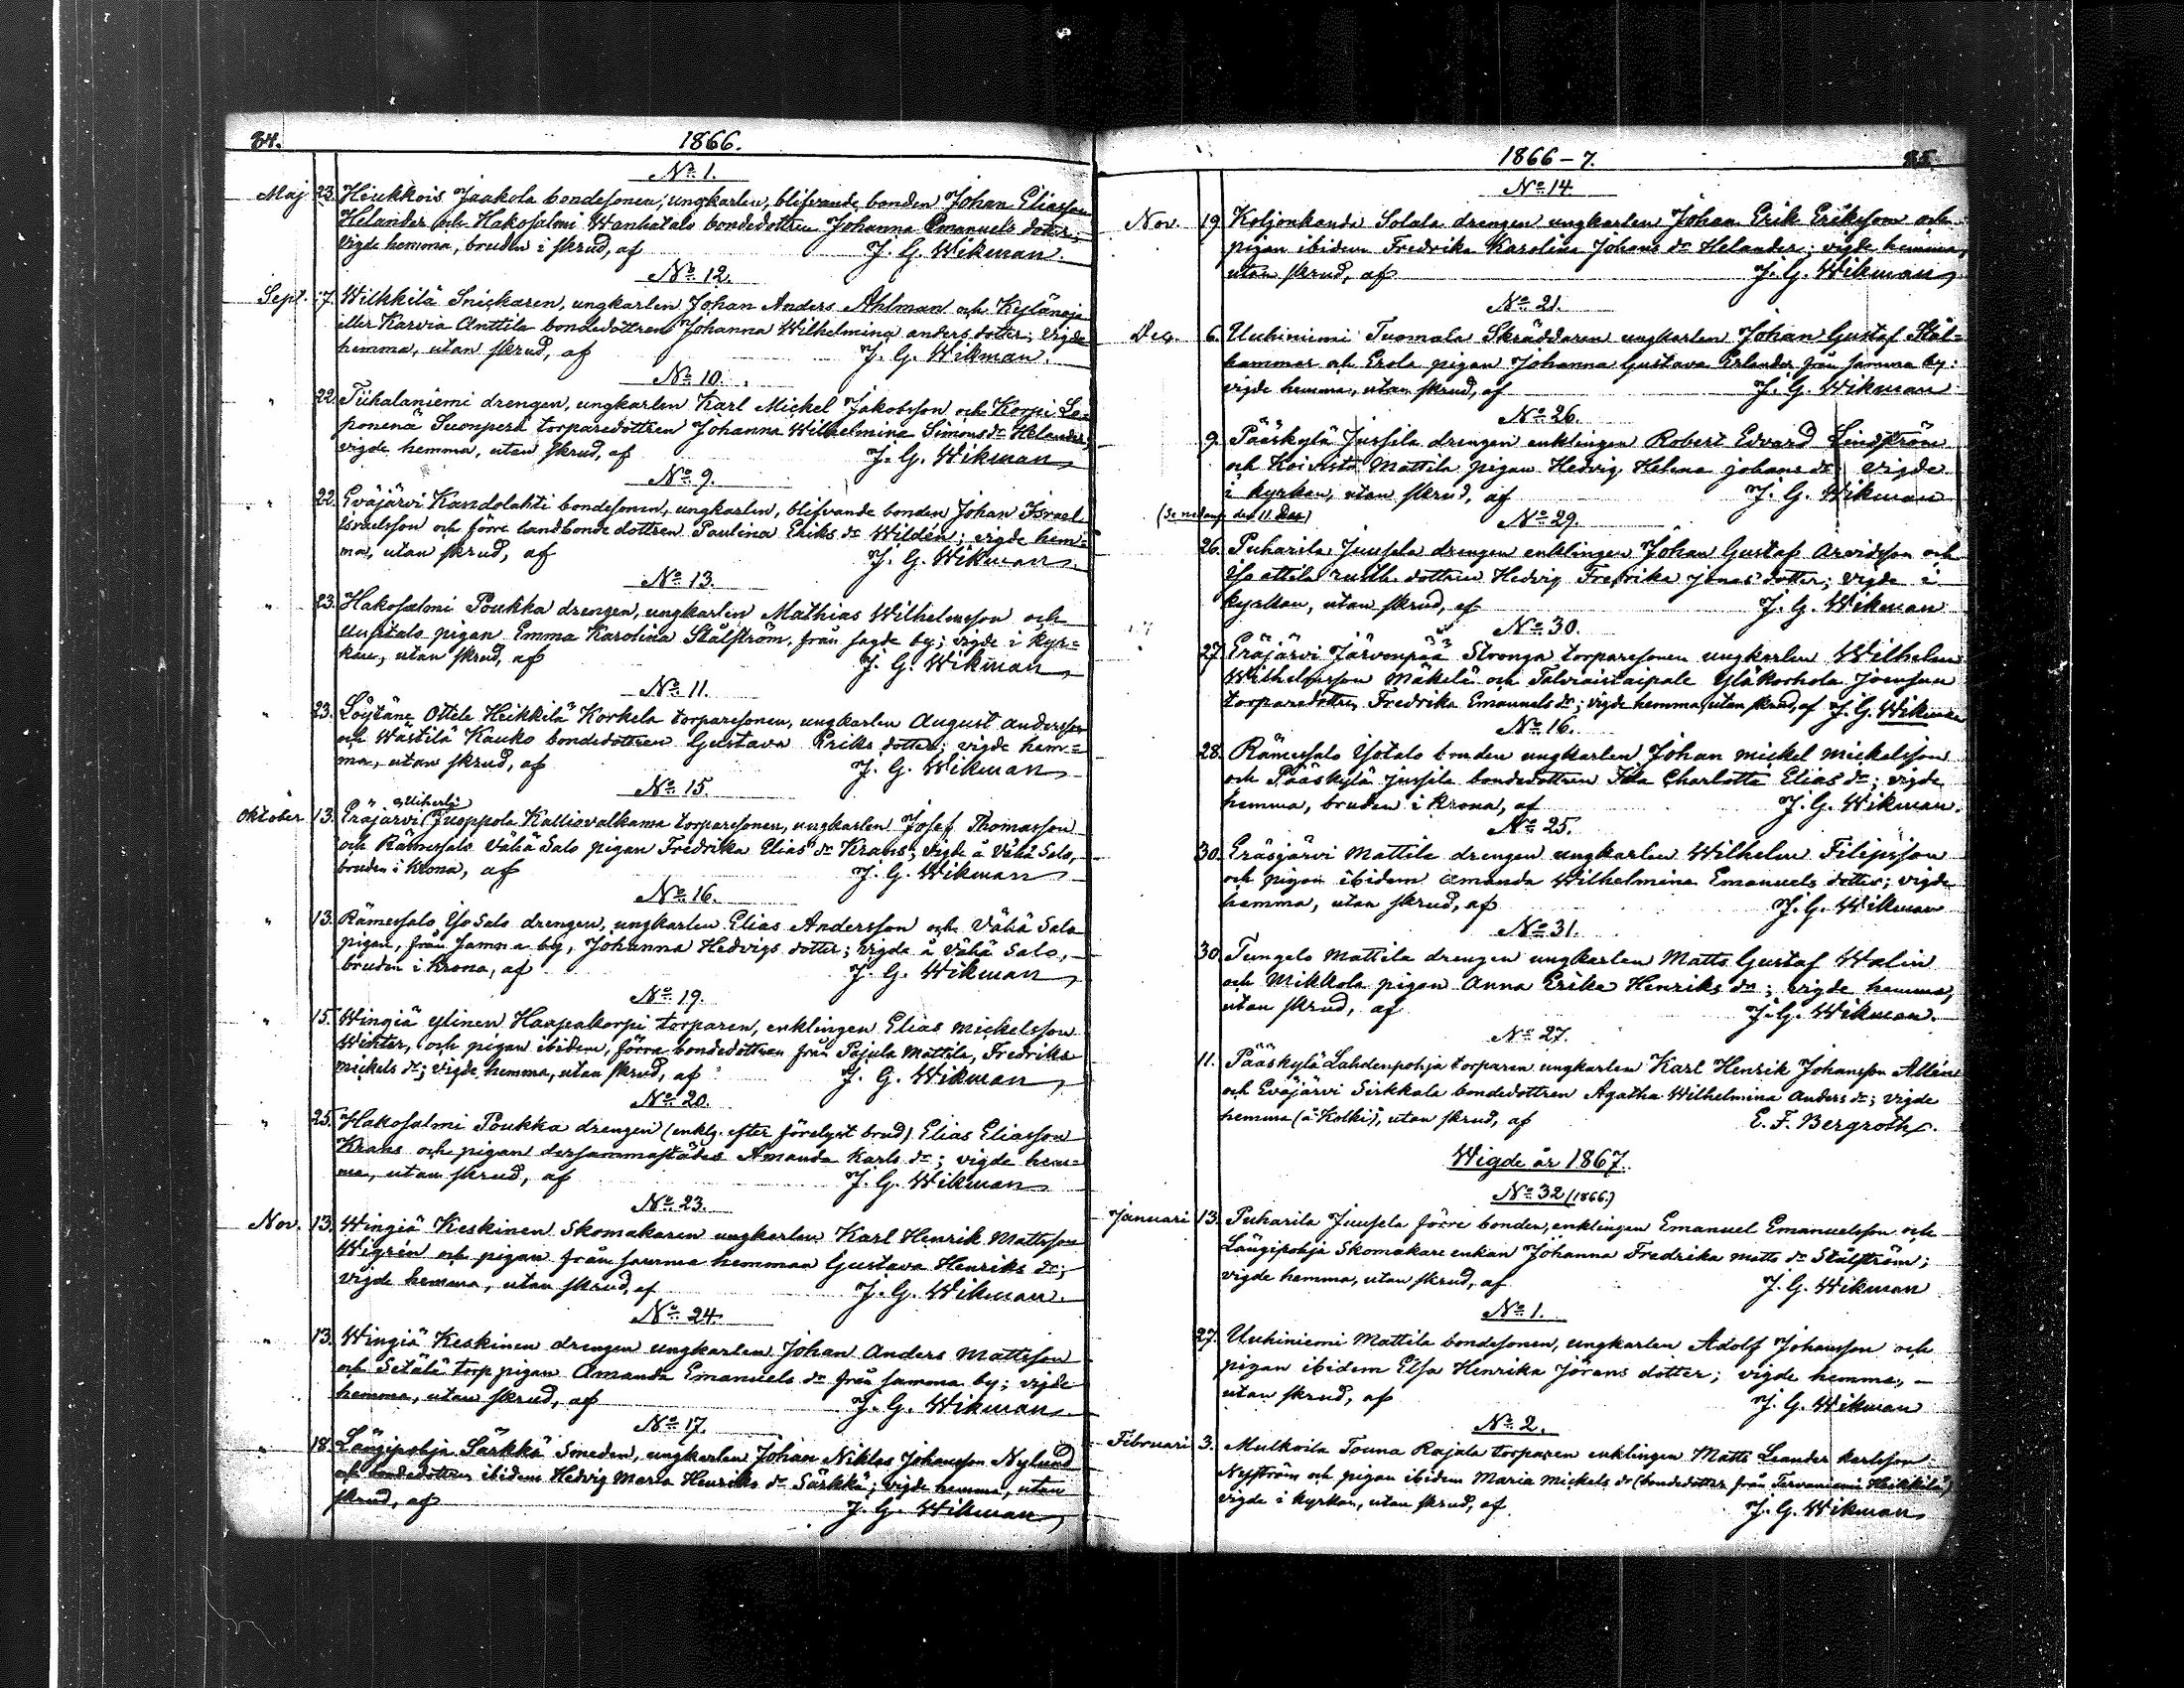 84.
1866.
No 1.
Maj 23. Heukkois Jaakola bondesonen, ungkarlen, blifvande bonden Johan Eliasson
Helander och Hakosalmi Wanhatalo bondedottren Johanna Emanuels dotter;
vigde hemma, bruden i skrud, af J. G. Wikman.
No 12.
Sept. 7. Wilkkilä Snickaren, ungkarlen Johan Anders Ahlman och Kylänoja
eller Karvia Anttila bondedottren Johanna Wilhelmina anders dotter; vigde
hemma, utan skrud, af J. G. Wikman.
No 10.
" 22. Tiihalaniemi drengen, ungkarlen Karl Mickel Jakobsson och Korpi Le-
ponenä Suonperä torparedottren Johanna Wilhelmina Simons dr Helander;
vigde hemma, utan skrud, af J. G. Wikman
No 9.
" 22. Eväjärvi Kandolahti bondesonen, ungkarlen, blifvande bonden Johan Israel
Israelsson och förre landbonde dottren Paulina Eriks dr Wildén; vigde hem-
ma, utan skrud, af J. G. Wikman.
No 13.
" 23. Hakosalmi Poukka drengen, ungkarlen Mathias Wilhelmsson och
Uusitalo pigan Emma Karolina Stålström, från sagde by; vigde i kyr-
kan, utan skrud, af J. G. Wikman
No 11.
" 23. Löytäne Ottela Heikkilä Korkela torparesonen, ungkarlen August andersson
och Wästilä Kauko bondedottren Gustava Eriks dotter; vigde hem-
ma, utan skrud, af J. G. Wikman
No 15.
Oktober 13. Eräjärvi Juoppola Kalliovalkama torparesonen, ungkarlen Josef Thomasson
och Rämessalo Vähä Salo pigan Fredrika Elias dr Krans; vigde å Vähä Salo,
bruden i Krona, af J. G. Wikman
No 16.
" 13. Rämessalo Iso Salo drengen, ungkarlen Elias Andersson och Vähä Salo
pigan, från samma by, Johanna Hedvigs dotter; vigde å Vähä Salo,
bruden i Krona, af J. G. Wikman
No 19.
" 15. Wingiä ylinen Haapakorpi torparen, enklingen Elias mickelsson
Winter, och pigan ibidem, förra bondedottren från Pajula Mattila, Fredrika
mickels dr; vigde hemma, utan skrud, af J. G. Wikman
No 20.
" 25. Hakosalmi Poukka drengen (enklg. efter förelyst brud) Elias Eliasson
Krans och pigan dersammastädes Amanda Karls dr; vigde hem-
ma, utan skrud, af J. G. Wikman
No 23.
Nov. 13. Wingiä Keskinen Skomakaren ungkarlen Karl Henrik Mattsson
Wigrén och pigan från samma hemman Gustava Henriks dr;
vigde hemma, utan skrud, af J. G. Wikman.
No 24.
" 13. Wingiä Keskinen drengen ungkarlen Johan Anders Mattsson
och Setälä torp pigan Amanda Emanuels dr från samma by; vigde
hemma, utan skrud, af J. G. Wikman
No 17.
" 18. Längipohja Särkkä Smeden, ungkarlen Johan Niklas Johansson Nylund
och bondedottren ibidem Hedvig Maria Henriks dr Särkkä; vigde hemma, utan
skrud, af J. G. Wikman
1866-7.
85.
No 14.
Nov. 19. Koljonkanda Solala drengen ungkarlen Johan Erik Eriksson och
pigan ibidem Fredrika Karolina Johans dr Helander; vigde hemma,
utan skrud, af J. G. Wikman
No 21.
Dec. 6. Uuhiniemi Tuomala Skräddaren ungkarlen Johan Gustaf Stål-
hammar och Erola pigan Johanna Gustava Erlander från samma by:
vigde hemma, utan skrud, af J. G. Wikman
No 26.
9. Pääskylä Jussila drengen enklingen Robert Edvard Lindström
och Koivisto Mattila pigan Hedvig Helena johans dr vigde
i kyrkan, utan skrud, af J. G. Wikman
(Se nedanf. den 11 Dec)
No 29.
26. Puharila Juusela drengen enklingen Johan Gustaf Arvidsson och
Iso attila rusth. dottren Hedvig Fredrika Jonas dotter; vigde i
kyrkan, utan skrud, af J. G. Wikman
No 30.
27. Eräjärvi Järvenpää Stronga torparesonen ungkarlen Wilhelm
Wilhelmsson Mäkelä och Talviaistaipale Yläkorhola Joensuu
torparedottren Fredrika Emanuels dr; vigde hemma, utan skrud, af J. G. Wikman
No 16.
28. Rämessalo Isotalo bonden ungkarlen Johan mickel mickelsson
och Pääskylä jussila bondedottren Ida Charlotta Elias dr; vigde
hemma, bruden i krona, af J. G. Wikman.
No 25.
30. Eräsjärvi Mattila drengen ungkarlen Wilhelm Filipsson
och pigan ibidem amanda Wilhelmina Emanuels dotter; vigde
hemma, utan skrud, af J. G. Wikman
No 31.
30. Tungelo Mattila drengen ungkarlen Matts Gustaf Walin
och Mikkola pigan Anna Erika Henriks dr; vigde hemma,
utan skrud, af J. G. Wikman.
No 27.
11. Pääskylä Lahdenpohja torparen ungkarlen Karl Henrik Johansson Allén
och Eväjärvi Sirkkala bondedottren Agatha Wilhelmina anders dr; vigde
hemma (å Kolki), utan skrud, af E. F. Bergroth.
Wigde år 1867.
No 32 (1866.)
Januari 13. Puharila Juusela förre bonden, enklingen Emanuel Emanuelsson och
Längipohja Skomakare enkan Johanna Fredrika matts dr Stålström;
vigde hemma, utan skrud, af J. G. Wikman
No 1.
27. Uuhiniemi Mattila bondesonen, ungkarlen Adolf Johansson och
pigan ibidem Elsa Henrika Jörans dotter; vigde hemma,
utan skrud, af J. G. Wikman
No 2.
Februari 3. Mulkoila Touna Rajala torparen enklingen Matts Leander Karlsson
Nyström och pigan ibidem Maria mickels dr (bondedotter från Tervaniemi Heikkilä)
vigde i kyrkan, utan skrud, af J. G. Wikman